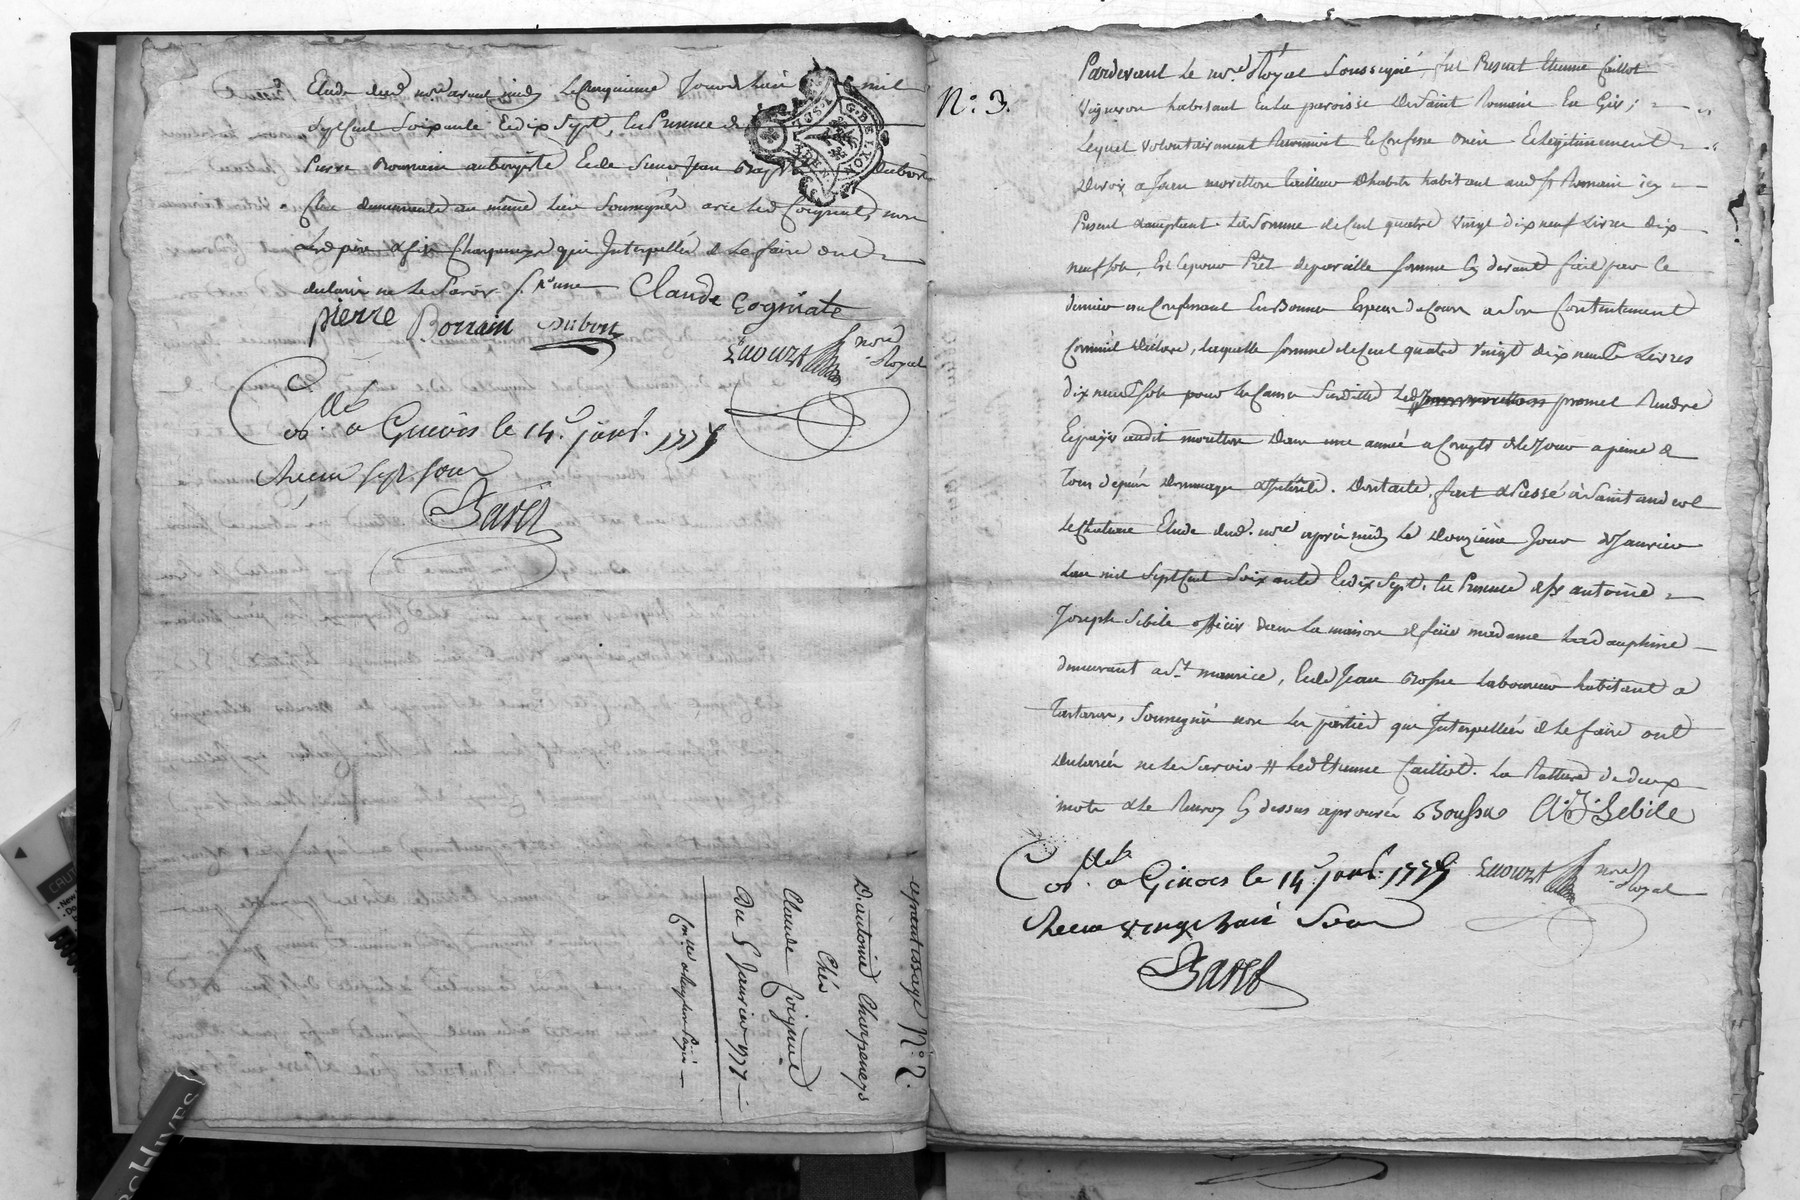 Etude dud. no.re avant midy le Cinquieme Jour de Janvier mil
Sept Cent Soixante Et dix Sept, En Presence de
Pierre Borrain aubergiste Et de Sieur Jean Bap Dubost
Clerc demeurants au même Lieu Soussignés avec led Coignat, non
Led père & fils Charpenay qui Interpellés de Le faire ont
declaré ne Le Savoir
Claude Cogniate
pierre Borrain Dubost
no.re Royal
Co.llé a Givors le 14.e janv. 1777
Receu sept sous
Baret
apentissage N.o 2.
D'antoine Charpenay
Chés
Claude Coignat
Du 5 Janvier 1777
N.o 3.
Pardevant Le no.re Royal Soussigné, fut Present Etienne Caillot
Vigneron habitant En La paroisse De Saint Romain En Gier,
Lequel volontairement Reconnoit Et Confesse devoir Et Legitimement
Devoir a Jean moretton Tailleur D'habits habitant aud St Romain icy
Present acceptant. La Somme de Cent quatre vingt dix neuf Livres dix
neuf sols, Et Ce pour Prêt de pareille somme Cy devant fait par Ce
dernier au Confessant En Bonnes Especes de Cours a Son Contentement
Comme il Declare, laquelle somme de Cent quatre vingt dix neuf Livres
dix neuf sols pour les Causes Susdittes Led promet Rendre
Et payer audit moretton Dans une année a Compter de Ce Jour a peine de
Tous depens Dommages & Interêts. Dont acte. fait & Passé à Saint andeol
Le Chateau Etude dud. no.re après midy Le Douzième Jour de Janvier
L'an mil Sept Cent Soixante Et dix Sept. En Presence de Sr antoine
Joseph Sibile officier Dans La maison de feüe madame La dauphine
demeurant a St maurice, Et de Jean Bossu Laboureur habitant a
Tartaras, Soussignés non Les parties qui Interpellées de Le faire ont
Declaré ne Le Savoir # Led Etienne Caillot. La Rature de deux
mots & Le Renvoy Cy dessus aprouvés Boussu A. J. Sebile
no.re Royal
Co.llé a Givors le 14.e janv. 1777
Receu vingt huit Sous
Baret